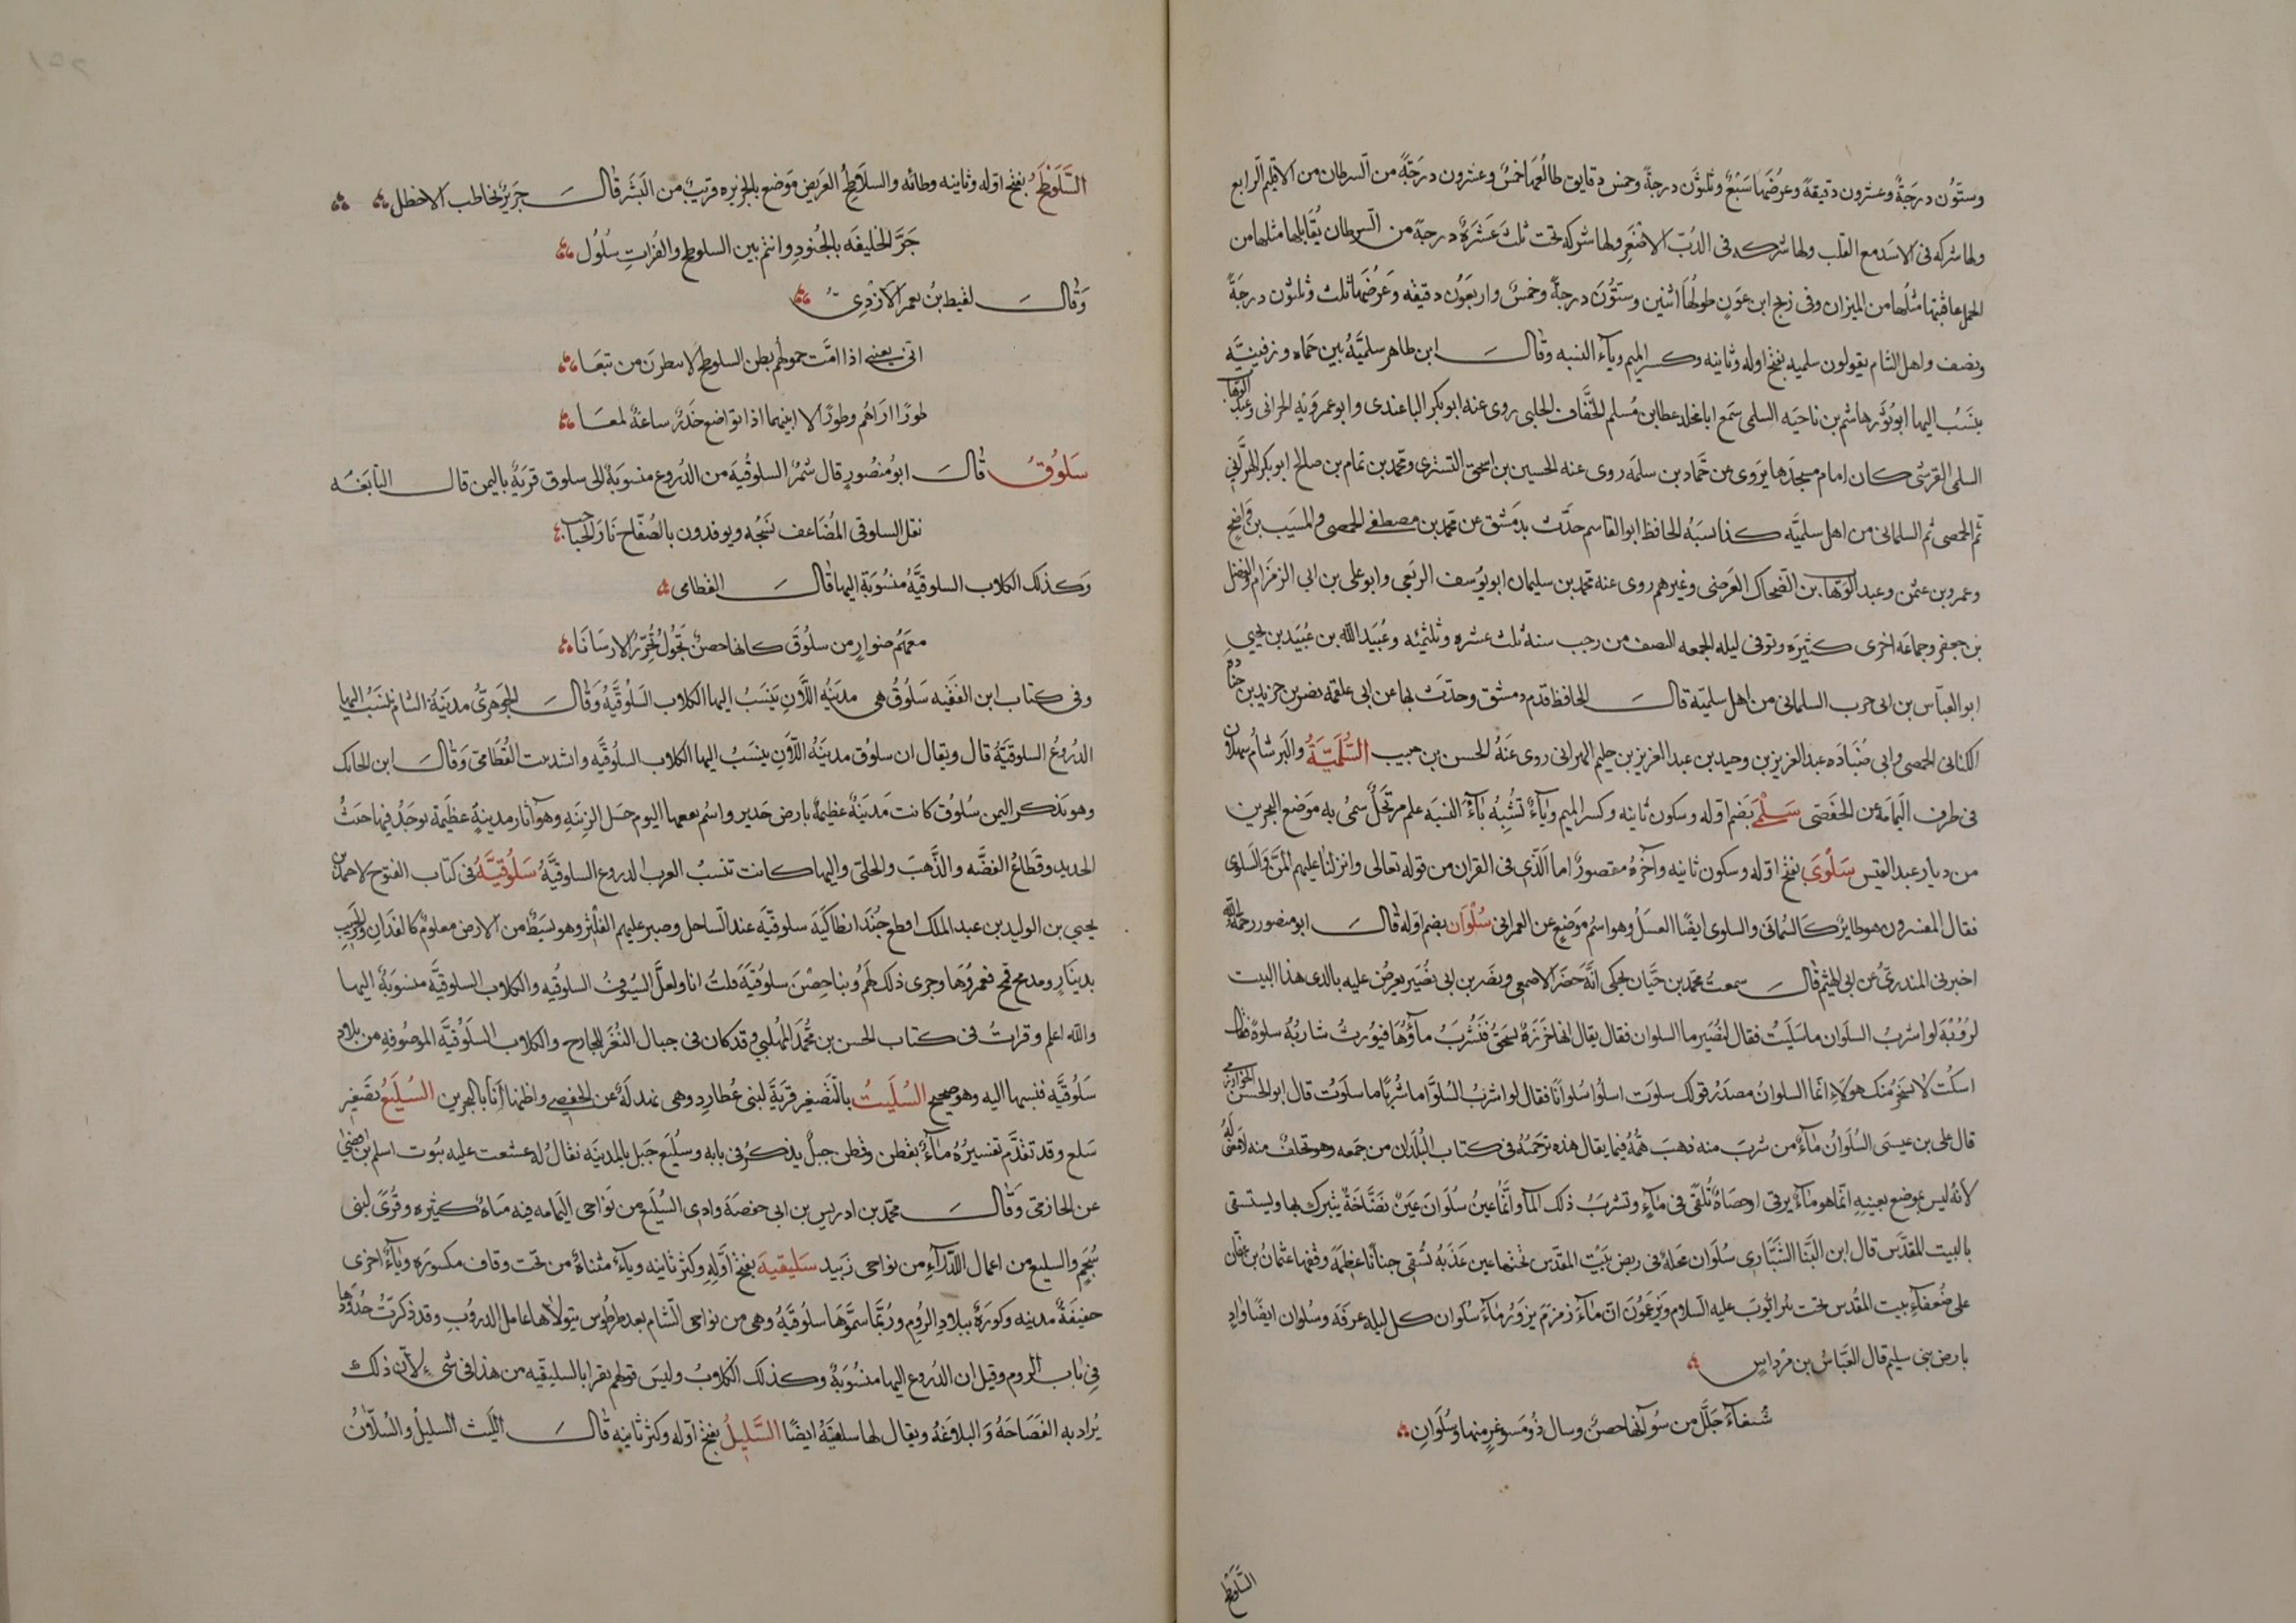 وستّون درجة وعشرون دقيقة وعرضها سبع وثلثون درجة وخمس دقايق طالعها خمس وعشرون درجة من السرطان من الاقليم الرابع
ولها شركه فى الاسد مع القلب ولها شركه فى الدب الاصغر ولها شركه تحت ثلث عشرة درجة من السرطان يقابلها مثلها من
الحمل عاقبتها مثلها من الميزان وفى زيج ابن عون طولها اثنين وستون درجة وخمس واربعون دقيقه وعرضها ثلث وثلثون درجة
ونصف واهل الشام يقولون سلميه بفتح اوله وثانيه وكسر الميم وياء النسبه وقال ابن طاهر سلمية بين حماه ورفنيته
ينسب اليها ابو ثور هاشم بن ناحيه السلمى سمع ابا مخلد عطا بن مسلم الخفاف الحلبى روى عنه ابو بكر الباغندى وابو عمروبه الحرانى وعبد الوهاب
السلمى القرشى كان امام مسجدها يروى عن حماد بن سلمه روى عنه الحسين بن اسحق التسترى ومحمد بن تمام بن صالح ابو بكر الحرانى
ثم الحمصى ثم السلمانى من اهل سلميه كذا نسبه الحافظ ابو القاسم حدث بدمشق عن محمد بن مصطفى الحمصى والمسيب بن واضح
وعمرو بن عثمن وعبد الوهاب بن الضحاك العرضى وغيرهم روى عنه محمد بن سليمان ابو يوسف الربعى وابو على بن ابى الزمزام الفضل
بن جعفر وجماعة اخرى كثيره وتوفى ليله الجمعه النصف من رجب سنه ثلث عشره وثلثمئه وعبيد الله بن عبيد بن يحيى
ابو العباس بن ابى حرب السلمانى من اهل سلمية قال الحافظ قدم دمشق وحدث بها عن ابى علقمه نصر بن خريد بن جنادة
الكنانى الحمصى وابى ضباده عبد العزيز بن وحيد بن عبد العزيز بن حليم البهرانى روى عنه الحسن بن حبيب السلمية والبرشاء سهلان
فى طرف اليمامة عن الحفصى سلمى بضم اوله وسكون ثانيه وكسر الميم وياء تشبه ياء النسبه علم مرتجل سمى به موضع البحرين
من ديار عبد القيس سلوى بفتح اوله وسكون ثانيه وآخره مقصور اما الذى فى القران من قوله تعالى وانزلنا عليهم المن والسلوى
فقال المفسرون هو طاير كالسمانى والسلوى ايضا العسل وهو اسم موضع عن العمرانى سلوان بضم اوله قال ابو منصور رحمة الله
اخبرنى المنذرى عن ابى الهيثم قال سمعت محمد بن حيان يحكى انه حضر الاصمعى ونصر بن ابى نصير يعرض عليه بالدى هذا البيت
لرؤبة لو اشرب السلوان ما سليت فقال لنصير ما السلوان فقال يقال انها خرزة تسحق فنشرب ماؤها فيورث شاربه سلوة فقال
اسكت لا تسخر منك هولاء انما السلوان مصدر قولك سلوت اسلوا سلوانا فقال لو اشرب السلوا ما شربا ما سلوت قال ابو الحسن الخوارزمى
قال على بن عيسى السلوان ماء من شرب منه ذهب همه فيما يقال هذه ترجمته فى كتاب البلدان من جمعه وهو تخلف منه لا معنى له
لانه ليس بموضع بعينه انما هو ماء يرقى او حصاة تلقى فى ماء وتشرب ذلك الماء وانما عين سلوان عين نضاخة يتبرك بها ويستسقى
بالبيت المقدس قال ابن البنا البشارى سلوان محلة فى ربض بيت المقدس تحتها عين عذبه تسقى جنانا عظيمة وقفها عثمان بن عفان
على ضعفاء بيت المقدس تحت بئر ايوب عليه السلام ويزعمون ان ماء زمزم يزور ماء سلوان كل ليله عرفة وسلوان ايضا واد
بارض بنى سليم قال العباس بن مرداس
شنعاء جلل من سوآتها حصن وسال ذو مسوغر منها وسلوان
السلوطح
السلوطح بفتح اوله وثانيه وطائه والسلاطح العريض موضع بالجزيره قريب من البشر قال جرير يخاطب الاخطل
جر الخليفه بالجنود وانتم بين السلوطح والفرات سلول
وقال لقيط بن يعمر الازدى
انى بعينى اذا امت حمولهم بطن السلوطح لا ينظرن من تبعا
طورا اراهم وطورا لا ابينهما اذا تواضع خدر ساعة لمعا
سلوق قال ابو منصور قال شمر السلوقية من الدروع منسوبة الى سلوق قرية باليمن قال النابغه
تقد السلوقى المضاعف نسجه ويوقدون بالصفاح نار الحباحب
وكذلك الكلاب السلوقية منسوبة اليها قال القطامى
معهم ضوار من سلوق كانها حصن تجول تجرر الارسانا
وفى كتاب ابن الفقيه سلوق هى مدينه اللان ينسب اليها الكلاب السلوقية وقال الجوهرى مدينة الشام تنسب اليها
الدروع السلوقية قال ويقال ان سلوق مدينه اللان ينسب اليها الكلاب السلوقيه وانشد بيت القطامى وقال ابن الحايك
وهو يذكر اليمن سلوق كانت مدينة عظيمة بارض خدير واسم بقعها اليوم حسل الزينه وهو آثار مدينة عظيمة يوجد فيها خبث
الحديد وقطاع الفضه والذهب والحلى واليها كانت تنسب العرب الدروع السلوقية سلوقية فى كتاب الفتوح لاحمد بن
يحيى بن الوليد بن عبد الملك اقطع جند انطاكيه سلوقيه عند الساحل وصير عليهم الفلثر وهو بسيط من الارض معلوم كالفدان والجريب
بدينار ومدى قمح فعمروها وجرى ذلك لهم وبنا حصن سلوقية قلت انا ولعل السيوف السلوقيه والكلاب السلوقية منسوبة اليها
والله اعلم وقرات فى كتاب الحسن بن محمد المهلبى وقد كان فى جبال الثغر الجارح والكلاب السلوقية الموصوفه من بلاد
سلوقية فنسبها اليه وهو صحيح السليت بالتصغير قرية لبنى عطارد وهى بهدلة عن الحفصى واظنها انا بالبحرين السليع تصغير
سلع وقد تقدم تفسيره ماء بقطن وقطن جبل يذكر فى بابه وسليع جبل بالمدينه يقال له عثعث عليه بيوت اسلم بن افصى
عن الحازمى وقال محمد بن ادريس بن ابى حفصة وادى السليع من نواحى اليمامه فيه مياه كثيره وقرى لبنى
سحيم والسليع من اعمال الكدراء من نواحى زبيد سليقية بفتح اوله وكثر ثانيه وياء مثناة من تحت وقاف مكسوره وياء اخرى
خفيفة مدينه وكورة ببلاد الروم وربما سموها سلوقية وهى من نواحى الشام بعد طرطوس يتولاها عامل الدروب وقد ذكرت حدودها
فى باب الروم وقيل ان الدروع اليها منسوبة وكذلك الكلاب وليس قولهم يقرا بالسليقيه من هذا فى شىء لان ذلك
يراد به الفصاحة والبلاغة ويقال لها سلقية ايضا السليل بفتح اوله وكثر ثانيه قال الليث السليل والسلان